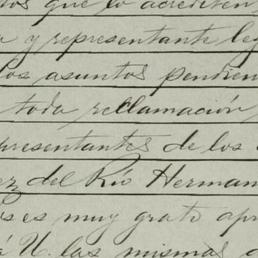 tos que lo acrediten
y representante leg
los asuntos pendien
toda reclamación
presentantes de los
ez del Río Herman
es muy grato apr
U. las mismas